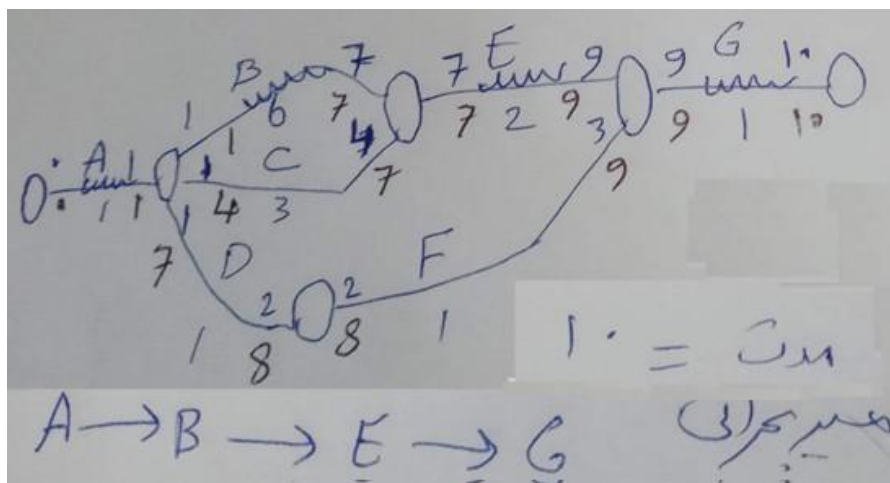 B 7 7 E 9 9 G ۱۰
1 6 7 7 2 9 3 9 1 ۱۰
۰ A 1 1 1 C 4
۰ 1 1 1 4 3 7 9
7 D 2 2 F
1 8 8 1
۱۰ = مدت
A → B → E → G مسیر بحرانی